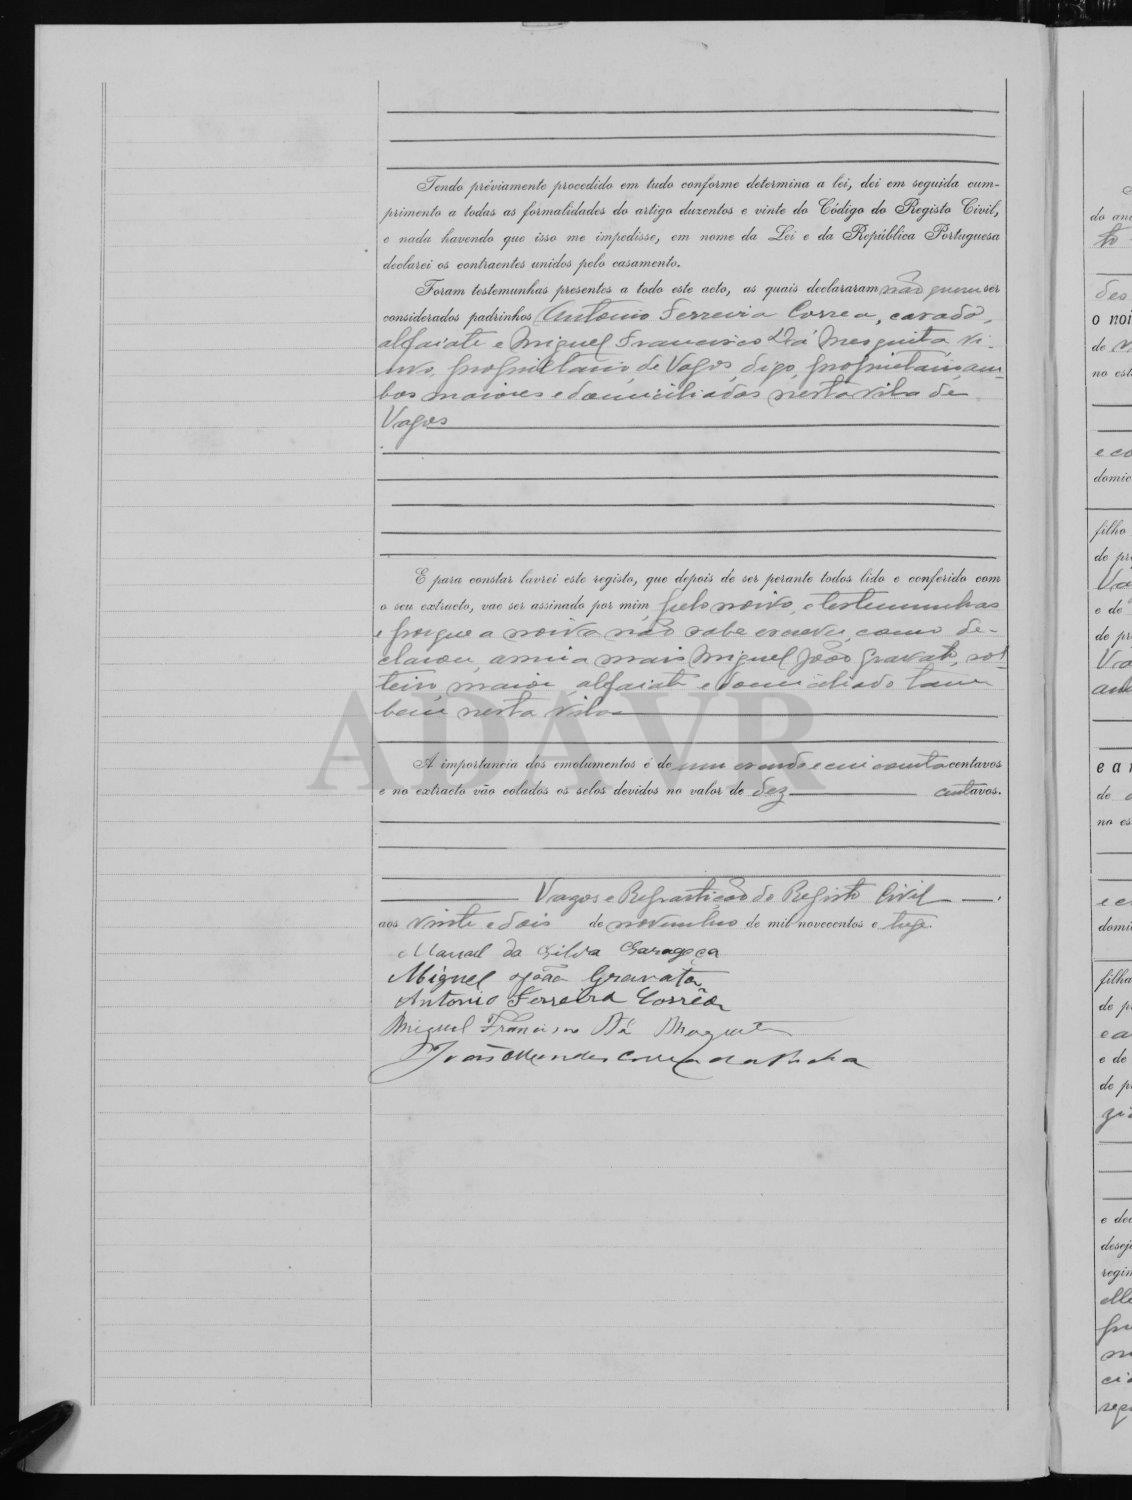 Tendo préviamente procedido em tudo conforme determina a lei, dei em seguida cum-
primento a todas as formalidades do artigo duzentos e vinte do Código do Registo Civil,
e nada havendo que isso me impedisse, em nome da Lei e da República Portuguesa
declarei os contraentes unidos pelo casamento.
Foram testemunhas presentes a todo este acto, as quais declararam não querer ser
considerados padrinhos Antonio Ferreira Correa, casado,
alfaiate e Miguel Francisco da Mesquita, vi-
uvo, proprietario, de Vagos, digo, proprietario, am-
bos maiores e domiciliados nesta vila de
Vagos
E para constar lavrei este registo, que depois de ser perante todos lido e conferido com
o seu extracto, vae ser assinado por mim, pelo noivo, e testemunhas
e porque a noiva não sabe escrever, como de-
clarou, assina mais Miguel João Gravato, sol-
teiro maior alfaiate e domiciliado tam-
bem nesta vila
A importancia dos emolumentos é de um escudo e cincoenta centavos
e no extracto vão colados os selos devidos no valor de dez centavos.
Vagos e Repartição do Registo Civil
aos vinte e dois de novembro de mil novecentos e treze.
Manuel da Silva Saragoça
Miguel João Gravato
Antonio Ferreira Corrêa
Miguel Francisco
João Mendes Correa da Rocha
ADAVR
o noi
de
no est
e co
domic
filho
de pr
e de
de pr
e a
de
no es
domi
filha
de p
e de
de p
e dec
deseje
regim